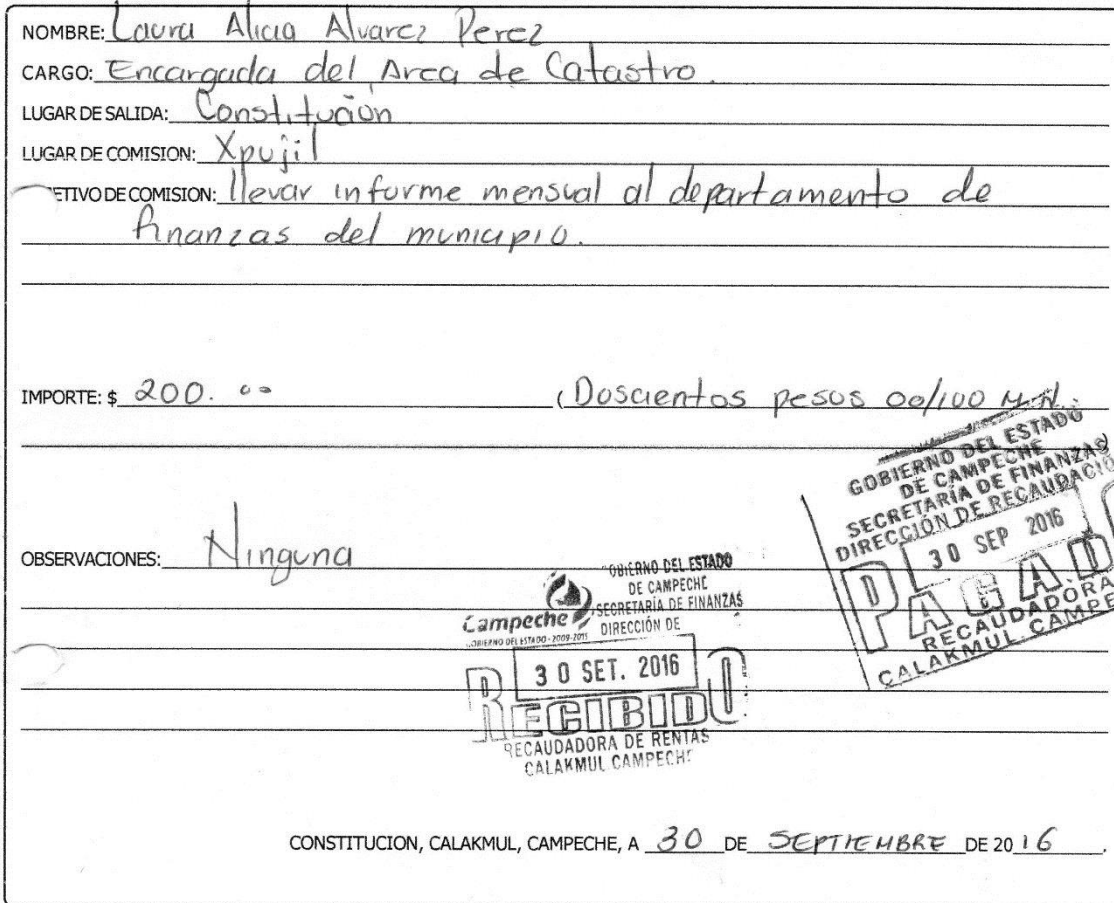 NOMBRE: Laura Alicia Alvarez Perez
CARGO: Encargada del Area de Catastro.
LUGAR DE SALIDA: Constitución
LUGAR DE COMISION: Xpujil
ETIVO DE COMISION: llevar informe mensual al departamento de
finanzas del municipio.
IMPORTE: $ 200.00 (Doscientos pesos 00/100 M.N.
GOBIERNO DEL ESTADO
DE CAMPECHE
SECRETARÍA DE FINANZAS
DIRECCIÓN DE RECAUDACIÓ
30 SEP 2016
PAGAD
RECAUDADORA
CALAKMUL CAMPE
OBSERVACIONES: Ninguna
GOBIERNO DEL ESTADO
DE CAMPECHE
SECRETARÍA DE FINANZAS
DIRECCIÓN DE
Campeche
GOBIERNO DEL ESTADO - 2009-2015
30 SET. 2016
RECIBIDO
RECAUDADORA DE RENTAS
CALAKMUL CAMPECHE
CONSTITUCION, CALAKMUL, CAMPECHE, A 30 DE SEPTIEMBRE DE 2016.